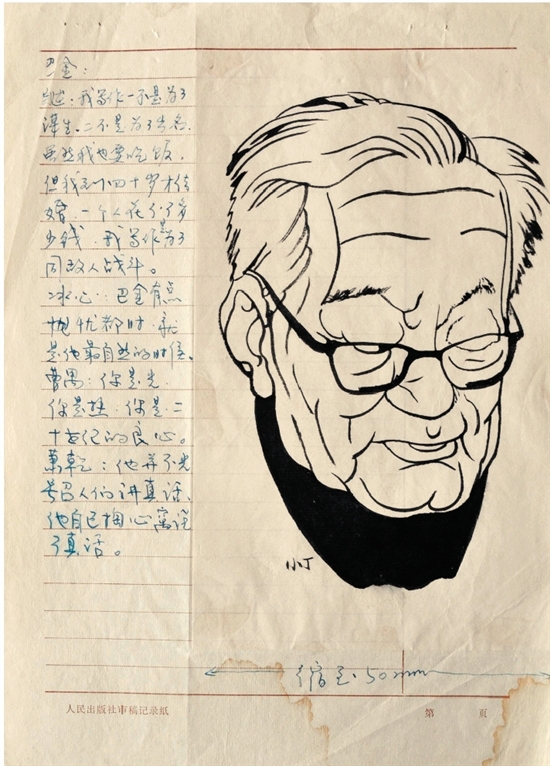 巴金:
自述:我写作一不是为了
谋生、二不是为了出名,
虽然我也要吃饭,
但我到四十岁才结
婚,一个人花不了多
少钱,我写作是为了
同敌人战斗。
冰心:巴金有点
忧郁
是他最自然的时候。
曹禺:你是光
你是热,你是二
十世纪的良心。
萧乾:他并不光
号召人们讲真话,
他自己掏心窝说
了真话。
小丁
缩至50mm
人民出版社审稿记录纸
第 页